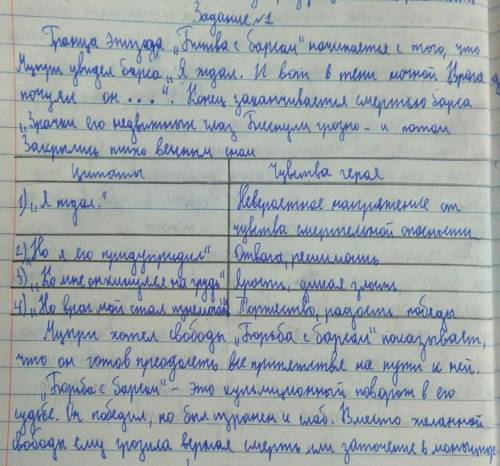 Задание №1
Граница эпизода „Битва с барсом" начинается с того, что
Мцыри увидел барса „Я ждал. И вот в тени ночной Врага
почуял он ....". Конец заканчивается смертью барса
„Зрачки его недвижных глаз Блеснули грозно - и потом
Закрылись тихо вечным сном
Цитаты Чувства героя
1) „Я ждал." Невероятное напряжение от
чувства смертельной опасности
2) „Но я его придупридил" Отвага, решимость
3) „Ко мне он кинулся на грудь" Ярость, дикая злость
4) „Но враг мой стал изнемогать" Торжество, радость победы
Мцыри хотел свободы „Борьба с барсом" показывает,
что он готов преодолеть все припятствие на пути к ней.
„Борьба с барсом" - это кульмиционный поворот в его
судьбе. Он победил, но был изранен и слаб. Вместо желанной
свободы ему грозила верная смерть или заточение в